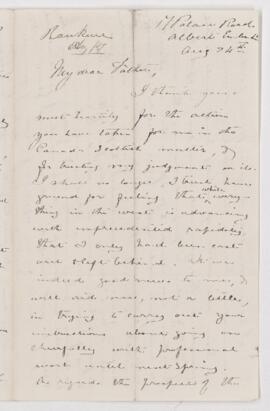 My dear Father,
I thank you
most heartily for the action
you have taken for me in the
Canada Scottish matter, &
for trusting my judgment in it.
I shall no longer, I trust, have
ground for feeling that, while every
thing in the west is advancing
with unprecedented rapidity,
that I only had been cast
out & left behind. It was
indeed good news to me, &
will aid me, not a little,
in trying to carry out your
instructions about going on
cheerfully with professional
work until next Spring.
As regards the prospects of the